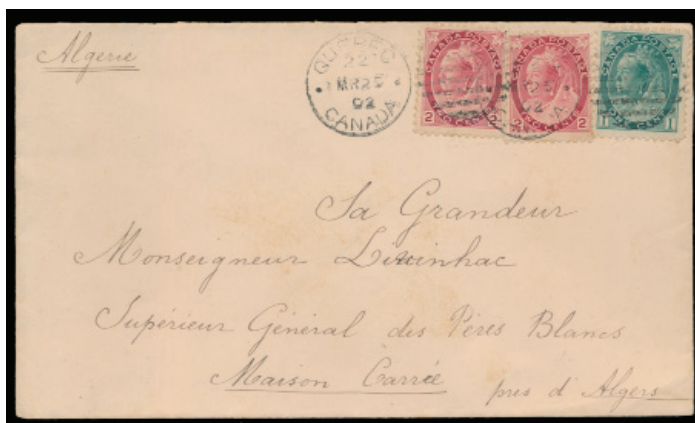 Algerie
QUEBEC
22
MR 25
02
CANADA
CANADA POSTAGE
2 TWO CENTS 2
CANADA POSTAGE
2 TWO CENTS
CANADA POSTAGE
1 ONE CENT 1
Sa Grandeur
Monseigneur Livinhac
Supérieur Général des Pères Blancs
Maison Carrée près d'Algers